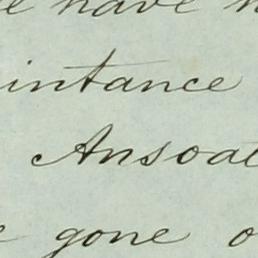 have
intance
Ansoat
gone o